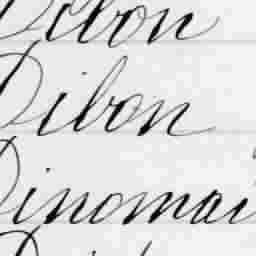 Dibon
Dibon
Dinomai